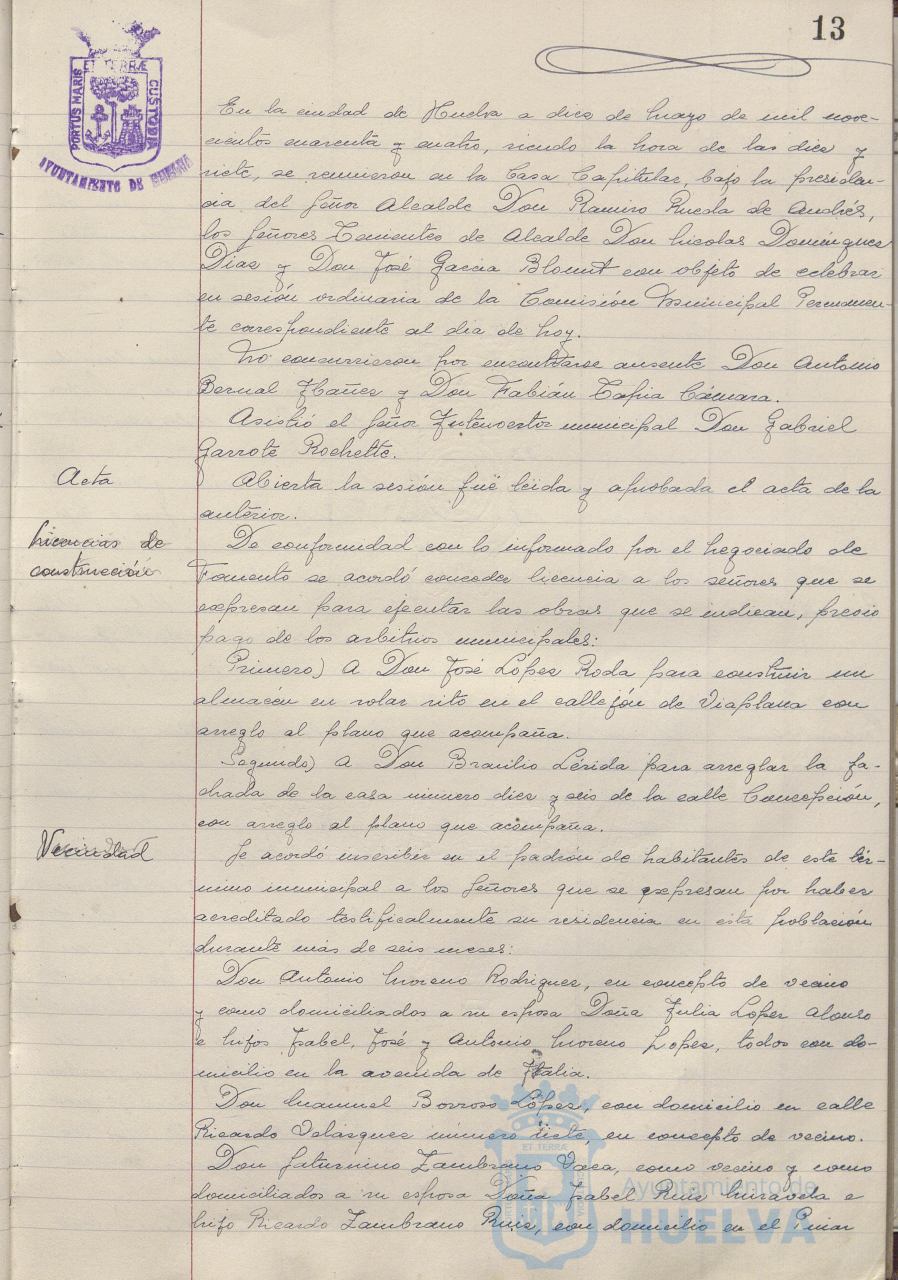 13
ET TERRÆ
PORTUS MARIS
CUSTODIA
AYUNTAMIENTO DE HUELVA
En la ciudad de Huelva a dies de mayo de mil nove-
cientos cuarenta y cuatro, siendo la hora de las dies y
siete, se reunieron en la Casa Capitular, bajo la presiden-
cia del Señor Alcalde Don Ramiro Rueda de Andrés,
los Señores Tenientes de Alcalde Don Nicolas Domingues
Dias y Don José Garcia Blount con objeto de celebrar
en sesión ordinaria de la Comisión Municipal Permanen-
te correspondiente al dia de hoy.
No concurrieron por encontrarse ausente Don Antonio
Bernal Ibañes y Don Fabián Tapia Cámara.
Asistió el Señor Interventor municipal Don Gabriel
Garrote Rochette.
Acta
Abierta la sesión fué leida y aprobada el acta de la
anterior.
Licencias de
construcción
De conformidad con lo informado por el Negociado de
Fomento se acordó conceder licencia a los señores que se
expresan para ejecutar las obras que se indican, previo
pago de los arbitrios municipales:
Primero) A Don José Lópes Roda para construir un
almacén en solar sito en el callejón de Viaplana con
arreglo al plano que acompaña.
Segundo) A Don Braulio Lérida para arreglar la fa-
chada de la casa número dies y seis de la calle Concepción,
con arreglo al plano que acompaña.
Vecindad
Se acordó inscribir en el padrón de habitantes de este tér-
mino municipal a los Señores que se expresan por haber
acreditado testificalmente su residencia en esta población
durante más de seis meses:
Don Antonio Moreno Rodrigues, en concepto de vecino
y como domiciliados a su esposa Doña Julia Lopes Alonso
e hijos Isabel, José y Antonio Moreno Lopes, todos con do-
micilio en la avenida de Italia.
Don Manuel Borroso Lópes, con domicilio en calle
Ricardo Velásques número siete, en concepto de vecino.
Don Saturnino Zambrano Vaca, como vecino y como
domiciliados a su esposa Doña Isabel Ruis e
hijo Ricardo Zambrano Ruis, con domicilio en el Pinar
ET TERRÆ
Ayuntamiento de
HUELVA